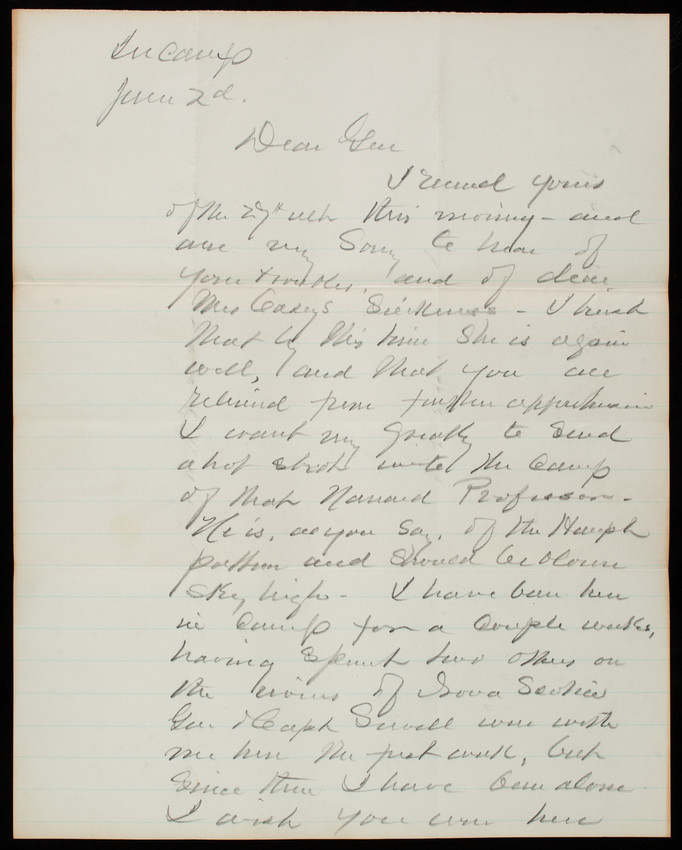 In Camp
June 2d.
Dear Gen
I received yours
of the 29th ult this morning - and
am very sorry to hear of
your troubles, and of dear
Mrs Casey's Sickness - I trust
that by this time she is again
well, and that you are
relieved from further apprehension
I want very greatly to send
a hot shot into the Camp
of that Harvard Professor -
He is, as you say, of the
pattern and should be blown
sky high - I have been here
in Camp for a couple weeks,
having spent two others on
the rivers of Nova Scotia
Gen & Capt Sewell were with
me here the first week, but
since then I have been alone
I wish you were here